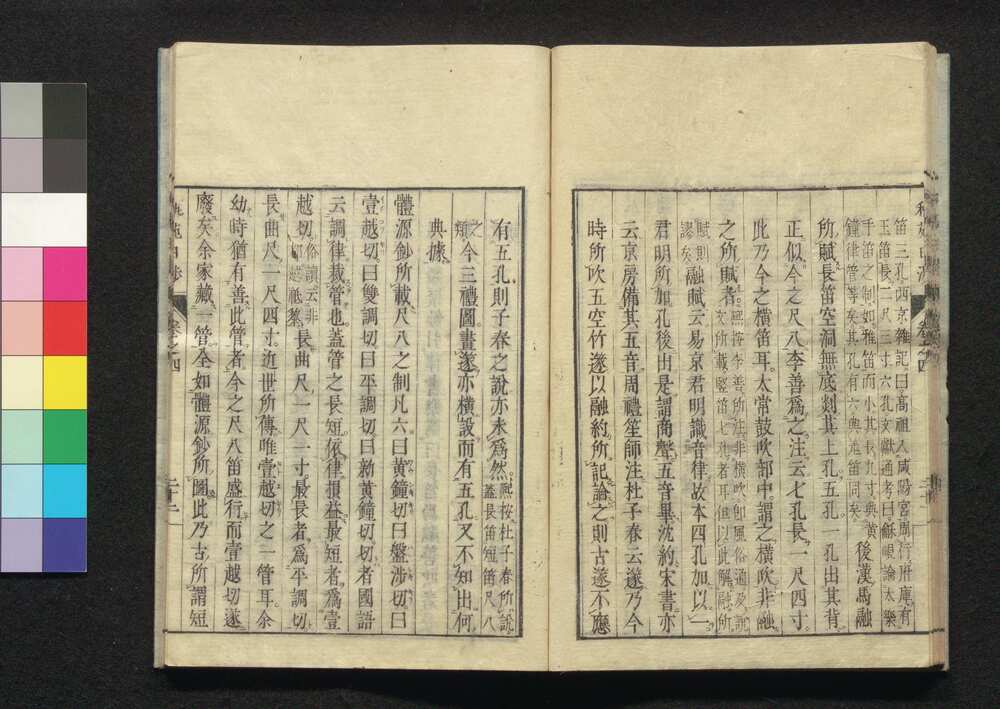 笛三孔西京雜記曰高祖入咸陽宮周行府庫有
玉笛長二尺三寸六孔文獻通考曰龢峴論太樂
手笛之制如雅笛而小其長九寸與黃
鐘律管等矣其孔有六與羌笛同矣
後漢馬融
所賦長笛空洞無底剡其上孔五孔一孔出其背
正似今之尺八李善爲之注云七孔長一尺四寸
此乃今之橫笛耳太常鼓吹部中謂之橫吹非融
之所賦者
熈按李善所注非橫吹卽風俗通及說
文所載豎笛七孔者耳但以此解融所
賦則
謬矣
融賦云易京君明識音律故本四孔加以一
君明所加孔後出是謂商聲五音畢沈約宋書亦
云京房備其五音周禮笙師注杜子春云篴乃今
時所吹五空竹篴以融約所記論之則古篴不應
有五孔則子春之說亦未爲然
熈按杜子春所說
蓋長笛短笛尺八
之
類
今三禮圖畫篴亦橫設而有五孔又不知出何
典據
體源鈔所載尺八之制凡六曰黃鐘切曰盤涉切曰
壹越切曰雙調切曰平調切曰新黃鐘切切者國語
云調律裁管也蓋管之長短依律損益最短者爲壹
越切
俗讀云非
長曲尺一尺一寸最長者爲平調切
長曲尺一尺四寸近世所傳唯壹越切之一管耳余
幼時猶有善此管者今之尺八笛盛行而壹越切遂
廢矣余家藏一管全如體源鈔所圖此乃古所謂短
卷之四
二十二